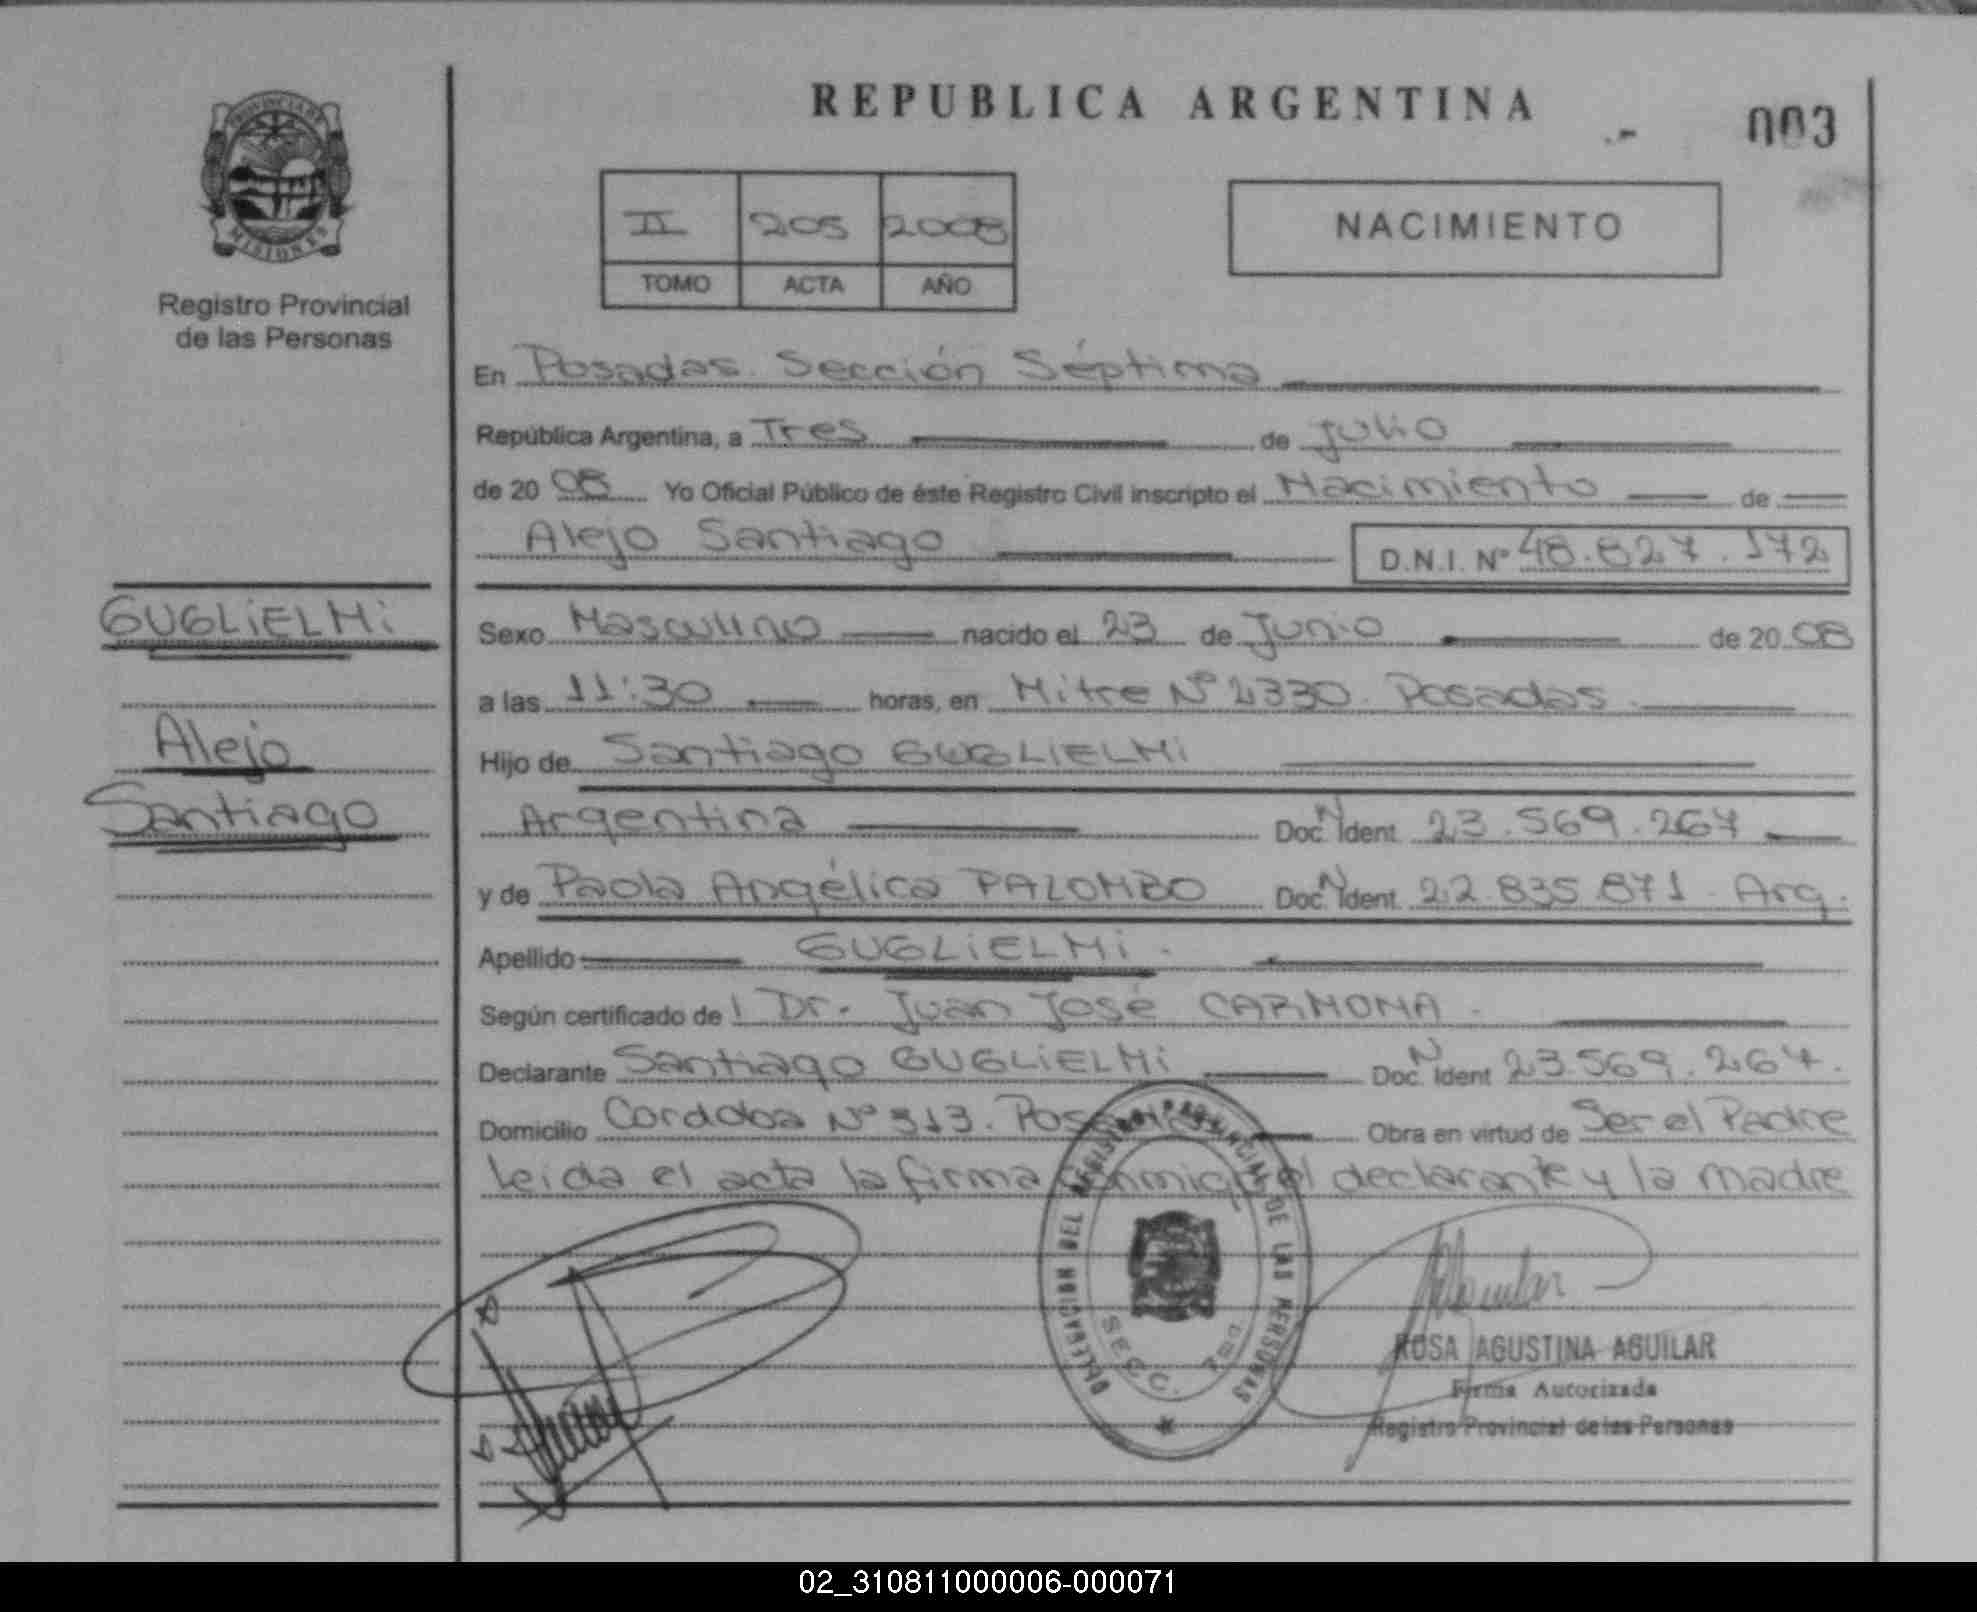 REPUBLICA ARGENTINA
003
PROVINCIA DE
MISIONES
Registro Provincial
de las Personas
II 205 2008
TOMO ACTA AÑO
NACIMIENTO
En Posadas. Sección Séptima
República Argentina, a Tres de Julio
de 20 08 Yo Oficial Público de éste Registro Civil inscripto el Nacimiento de
Alejo Santiago D.N.I. Nº 48.827.172
GUGLiELMi
Alejo
Santiago
Sexo Masculino nacido el 23 de Junio de 20 08
a las 11:30 horas, en Mitre Nº 2330. Posadas.
Hijo de Santiago GUGLiELMi
Argentina Doc. N Ident 23.569.267
y de Paola Angélica PALOMBO Doc. N Ident 22.835.871. Arg.
Apellido GUGLiELMi.
Según certificado de l Dr. Juan José CARMONA.
Declarante Santiago GUGLiELMi Doc. N Ident 23.569.267.
Domicilio Cordoba Nº 313. Obra en virtud de Ser el Padre
Leida el acta la firma conmigo el declarante y la madre
DELEGACION DEL REGISTRO PROVINCIAL DE LAS PERSONAS
SECC. 7ma
ROSA AGUSTINA AGUILAR
Firma Autorizada
Registro Provincial de las Personas
02_310811000006-000071